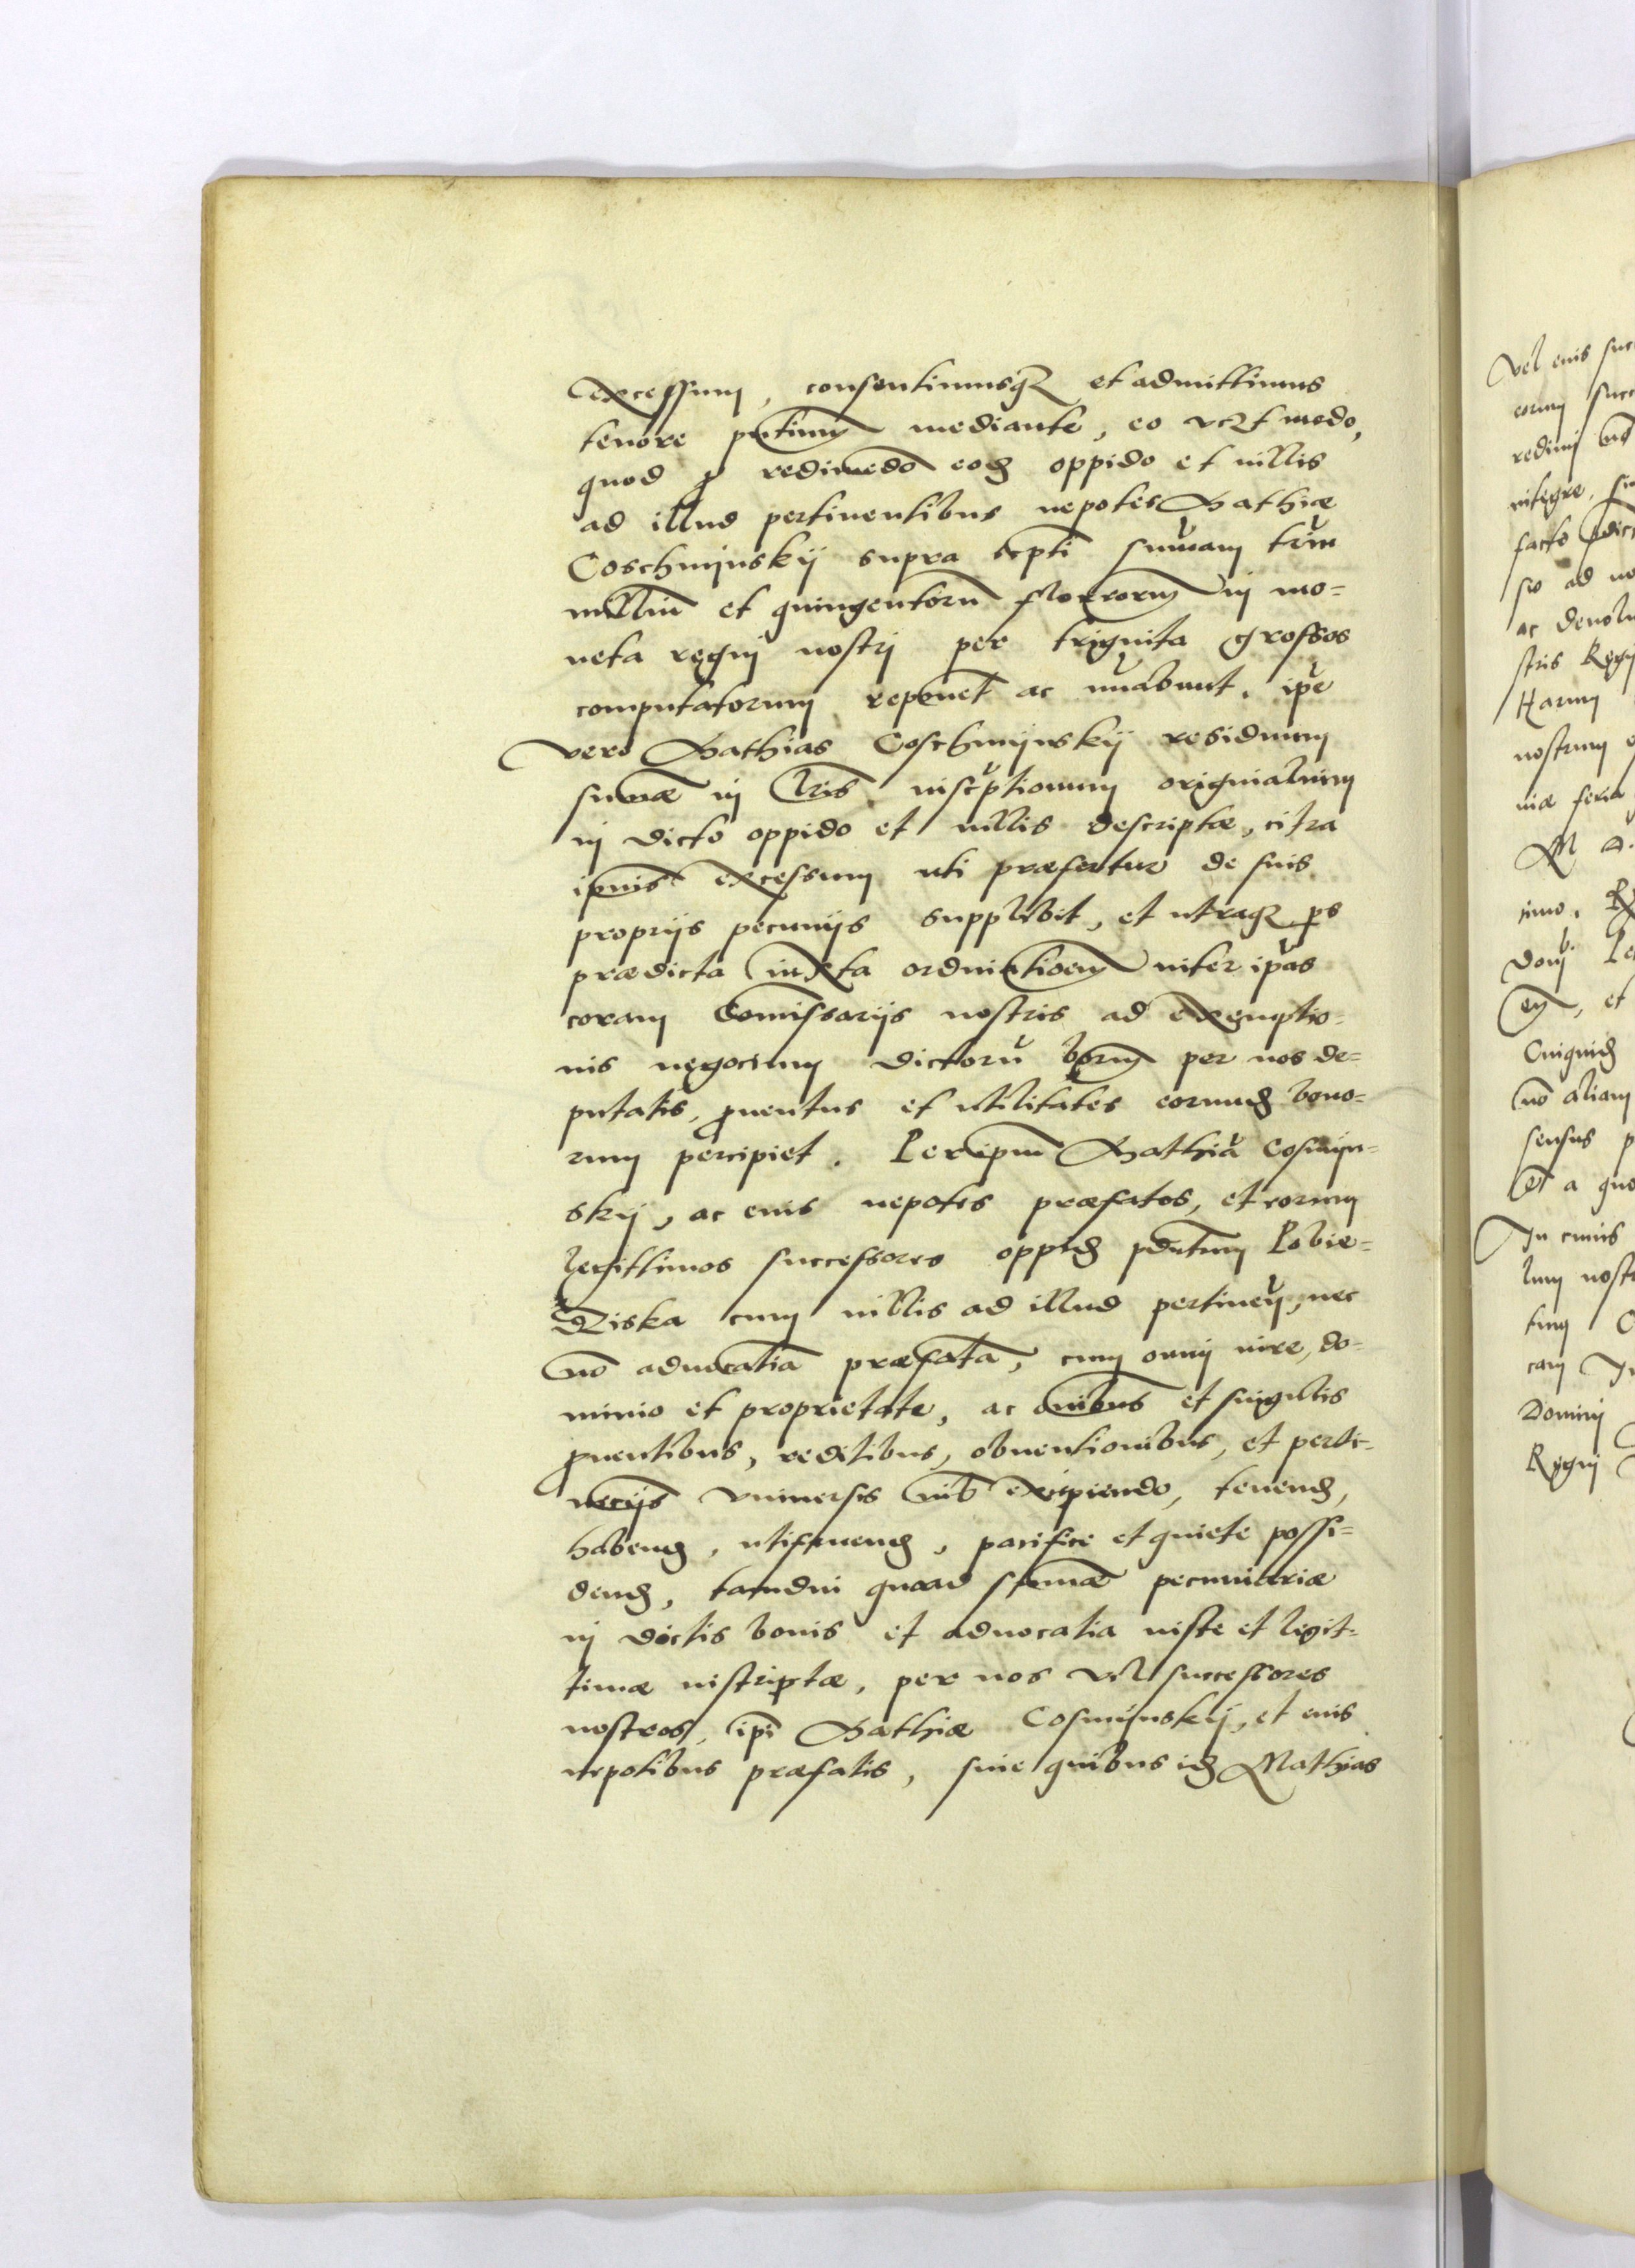 excessum, consentimusq₃ et admittimus
tenore pñtium mediante, eo vc₃t modo,
quod ꝓ redimẽdo eod oppido et villis
ad illud pertinentibus nepotes Mathiæ
Coschmijnskij supra scpti sum̃am trium
milliũ et quingentorũ florenorum in mo=
neta regni nostri per triginta grossos
computatorum reponẽt ac nũabunt, ip̃e
vero Mathias Coschmijnskij residuum
sum̃æ in lr̃is inscptionum originalium
in dicto oppido et villis descriptæ, citra
ipsius excessum uti præfertur de suis
proprijs pecunijs supplebit, et utraq₃ ps
prædicta iuxta ordinatioem inter ip̃as
coram Com̃issarijs nostris ad exemptio=
nis negocium dictorũ bonorum per nos de=
putatis, ꝓuentus et utilitates eorund bono=
rum percipiet. Per ip̃um Mathiã Cosmijn=
skij, ac eius nepotes præfatos, et eorum
legittimos successores oppid p̃dictum Lobie=
Ziska cum villis ad illud pertineñ, nec
nõ aduocatia præfata, cum omni iure, do=
minio et proprietate, ac om̃ibus et singulis
ꝓuentibus, reditibus, obuentionibus, et perti=
necijs vniuersis nihil excipiendo, tenend,
habend, utifruend, pacifice et quiete possi=
dend, tamdiu quoad sum̃æ pecuniariæ
in dictis bonis et aduocatia iuste et legit=
timæ inscriptæ, per nos vel successores
nostros, ip̃i Mathiæ Cosmijnskij, et eius
nepotibus præfatis, siue quibus id Mathias
Vel eius suc
eorum succ
redimi
integre, si
facto
sio ad no
ac deuolu
stris Regn
Harum
nostrum
niæ feria
M D.
imo, R
Domi Pe
et
Cuiquid
nõ aliam
sensus p
a quo
In cuius
lum nost
tum
cam In
Domini
Regni